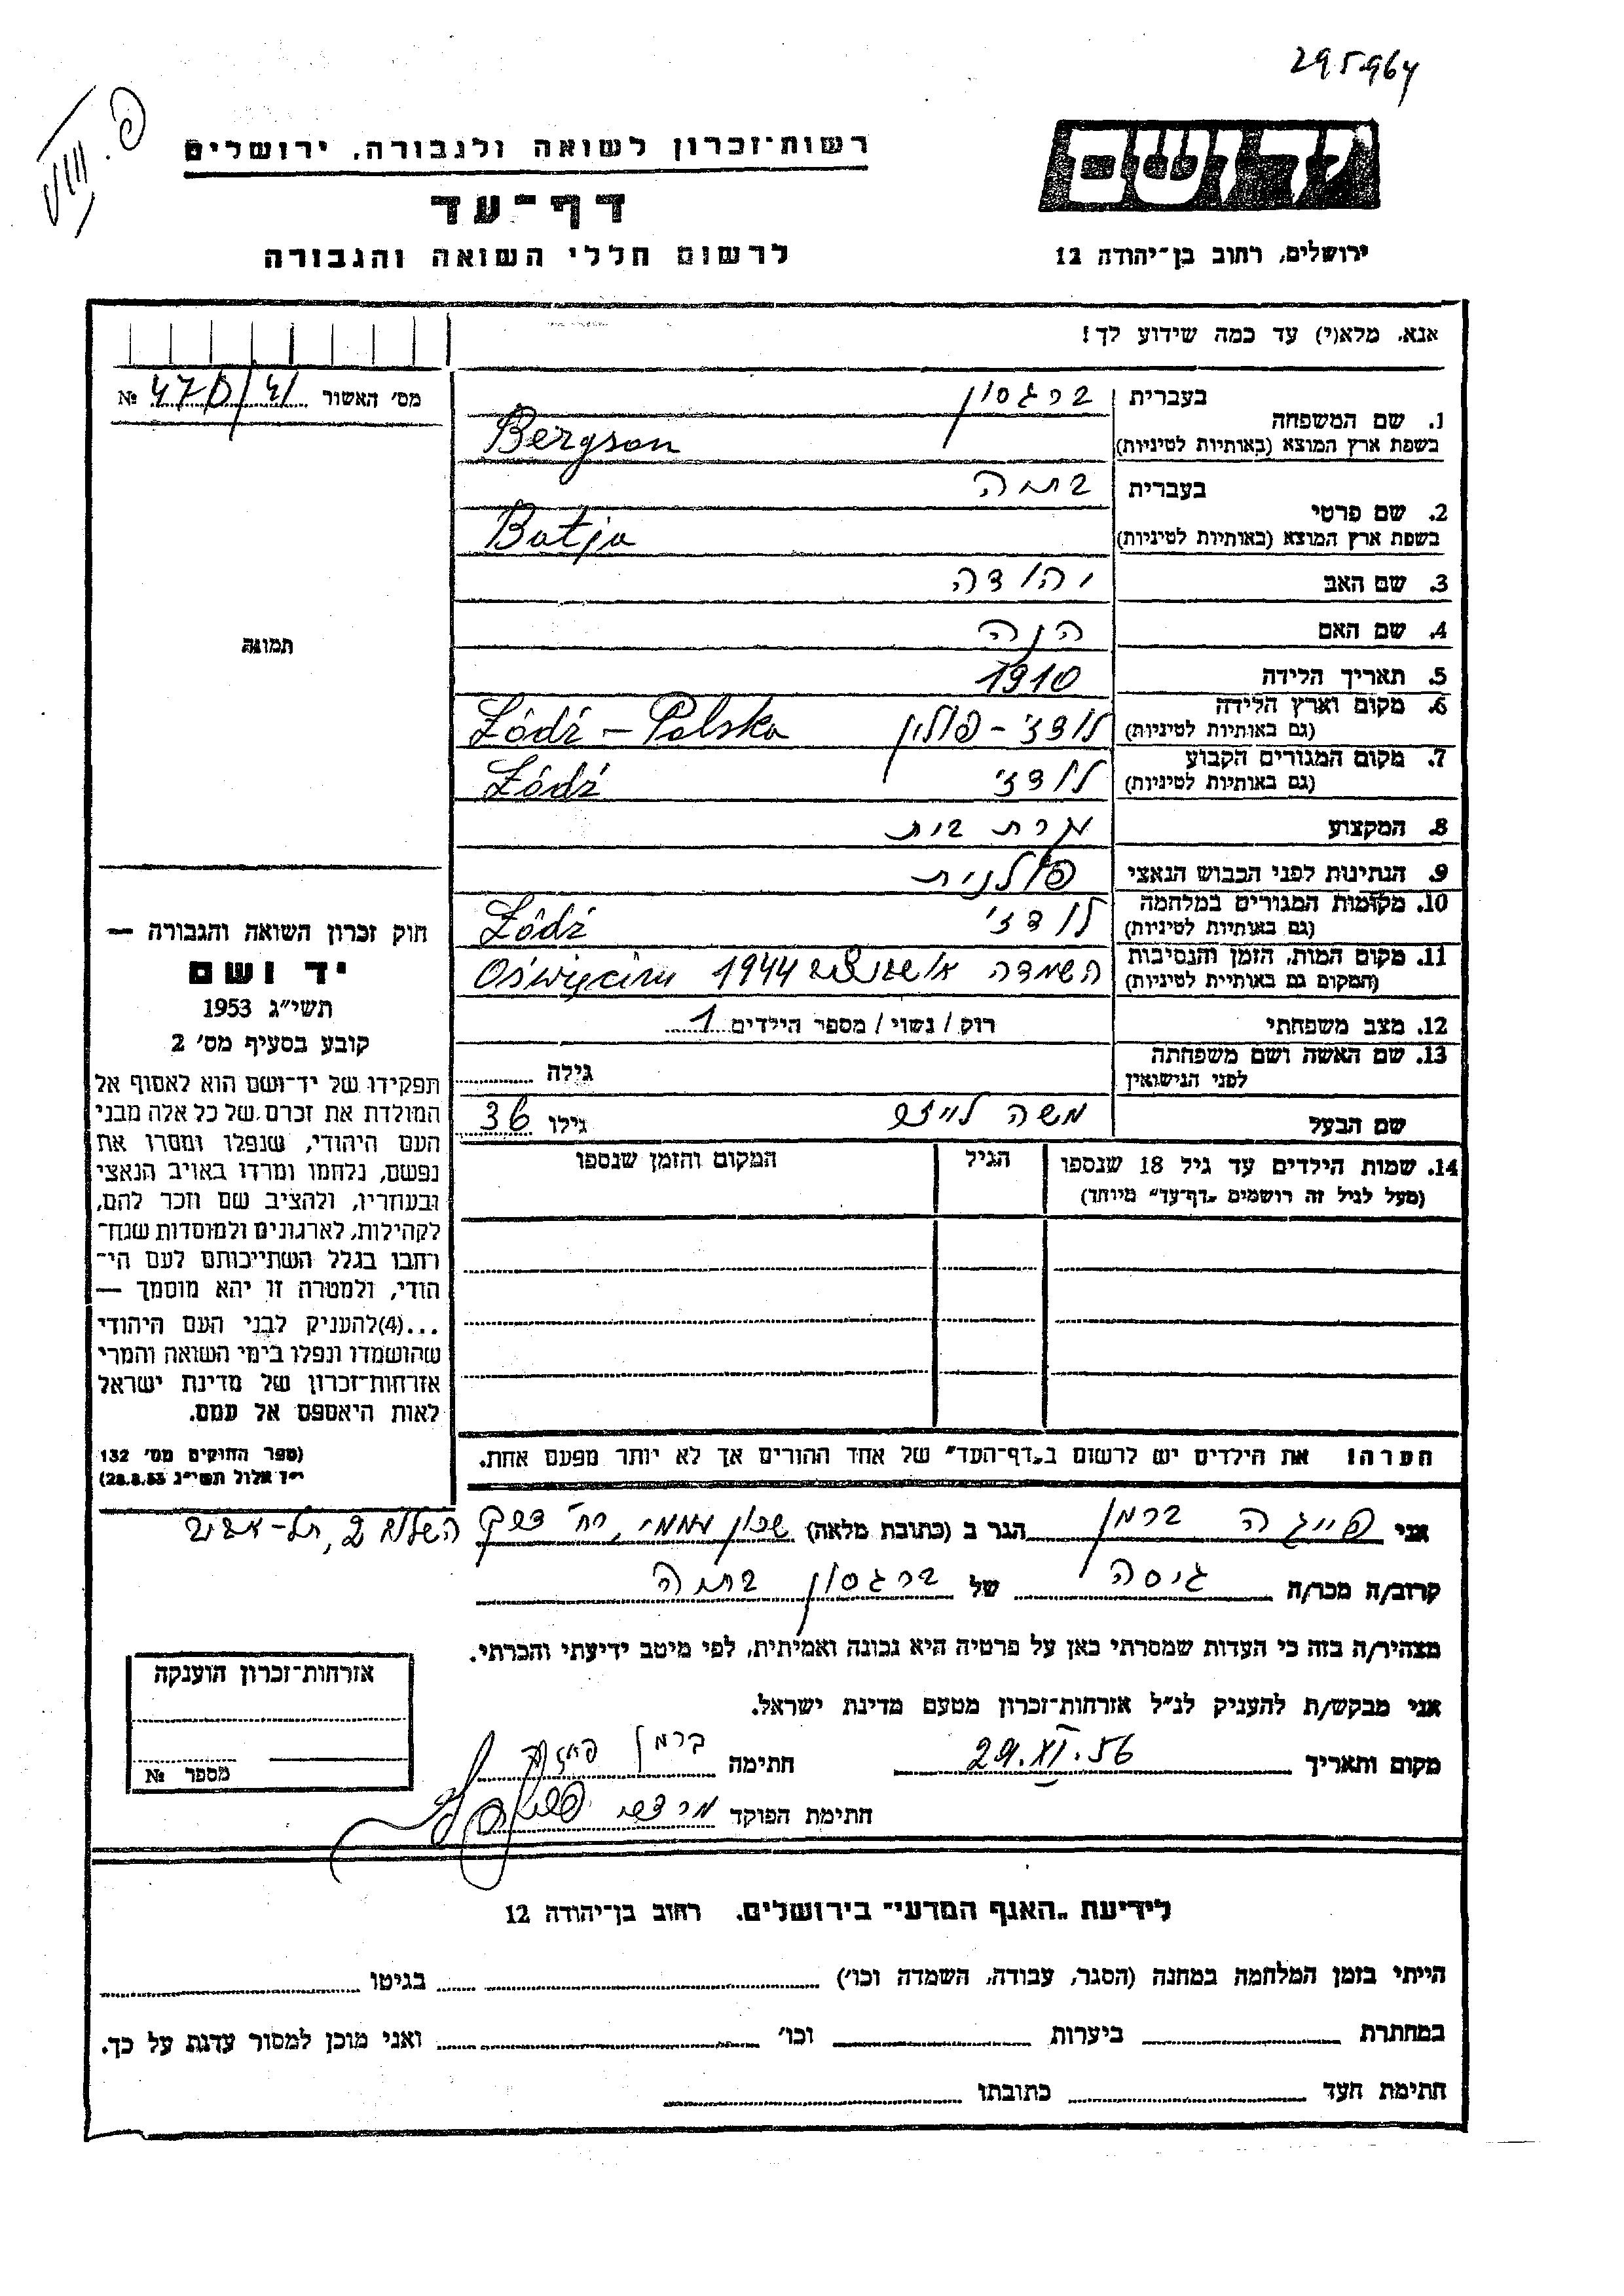 295964
רשות־זכרון לשואה ולגבורה, ירושלים
דף־עד
לרשום חללי השואה והגבורה
ידושם
ירושלים, רחוב בן־יהודה 12
אנא, מלא(י) עד כמה שידוע לך!
מס' האשור № 470/41
תמונה
1. שם המשפחה בעברית ברגסון
בשפת ארץ המוצא (באותיות לטיניות) Bergson
2. שם פרטי בעברית בתיה
בשפת ארץ המוצא (באותיות לטיניות) Batja
3. שם האב יהודה
4. שם האם חנה
5. תאריך הלידה 1910
6. מקום וארץ הלידה (גם באותיות לטיניות) לודז' - פולין Łódź – Polska
7. מקום המגורים הקבוע (גם באותיות לטיניות) לודז' Łódź
8. המקצוע עקרת בית
9. הנתינות לפני הכבוש הנאצי פולנית
10. מקומות המגורים במלחמה (גם באותיות לטיניות) לודז' Łódź
11. מקום המות, הזמן והנסיבות (המקום גם באותיית לטיניות) השמדה 1944 Oświęcim
12. מצב משפחתי רוק / נשוי / מספר הילדים 1
13. שם האשה ושם משפחתה לפני הנישואין גילה
שם הבעל משה לייזר גילו 36
14. שמות הילדים עד גיל 18 שנספו
(מעל לגיל זה רושמים „דף־עד" מיוחד)
הגיל
המקום והזמן שנספו
הערה! את הילדים יש לרשום ב„דף־העד" של אחד ההורים אך לא יותר מפעם אחת.
חוק זכרון השואה והגבורה —
יד ושם
תשי"ג 1953
קובע בסעיף מס' 2
תפקידו של יד־ושם הוא לאסוף אל
המולדת את זכרם של כל אלה מבני
העם היהודי, שנפלו ומסרו את
נפשם, נלחמו ומרדו באויב הנאצי
ובעוזריו, ולהציב שם וזכר להם,
לקהילות, לארגונים ולמוסדות שנח־
רחבו בגלל השתייכותם לעם הי־
הודי, ולמטרה זו יהא מוסמך —
...(4)להעניק לבני העם היהודי
שהושמדו ונפלו בימי השואה והמרי
אזרחות־זכרון של מדינת ישראל
לאות היאספם אל עמם.
(ספר החוקים מס' 132
י"ז אלול תשי"ג 28.8.53)
אני פייגה ברמן הגר ב (כתובת מלאה) שכון עממי, רח' השלושה 2, תל-אביב
קרוב/ה מכר/ה גיסה של ברגסון בתיה
מצהיר/ה בזה כי העדות שמסרתי כאן על פרטיה היא נכונה ואמיתית, לפי מיטב ידיעתי והכרתי.
אני מבקש/ת להעניק לנ"ל אזרחות־זכרון מטעם מדינת ישראל.
מקום ותאריך 29.XI.56 חתימה ברמן
חתימת הפוקד מרדכי
אזרחות־זכרון הוענקה
מספר №
לידיעת „האגף המדעי" בירושלים. רחוב בן־יהודה 12
הייתי בזמן המלחמה במחנה (הסגר, עבודה, השמדה וכו') בגיטו
במחתרת ביערות וכו' ואני מוכן למסור עדות על כך.
חתימת העד כתובתו